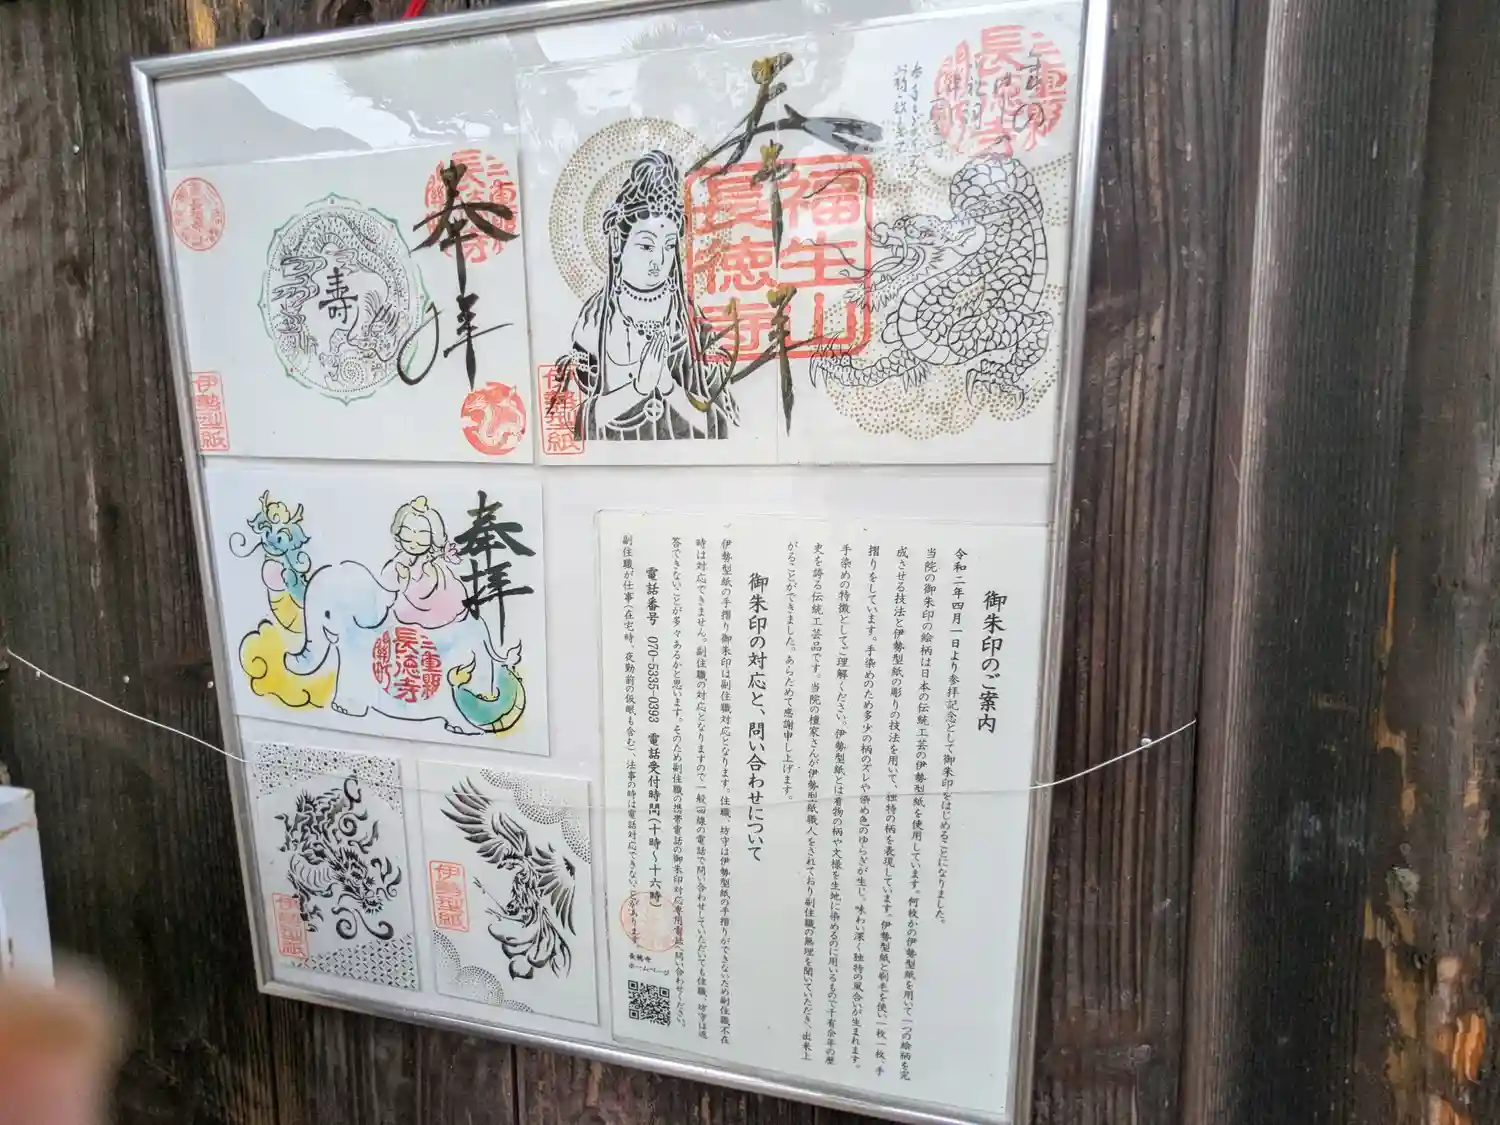 奉拝
寿
三重県
長徳寺
関町
伊勢型紙
奉拝
福生山
長徳寺
伊勢型紙
三重県
長徳寺
奉拝
三重県
長徳寺
関町
伊勢型紙
伊勢型紙
御朱印のご案内
令和二年四月一日より参拝記念として御朱印をはじめることになりました。
当院の御朱印の絵柄は日本の伝統工芸の伊勢型紙を使用しています。何枚かの伊勢型紙を用いて一つの絵柄を完
成させる技法と伊勢型紙の彫りの技法を用いて、独特の柄を表現しています。伊勢型紙と刷毛を使い一枚一枚、手
摺りをしています。手染めのため多少の柄のズレや染め色のゆらぎが生じ。味わい深く独特の風合いが生まれます。
手染めの特徴としてご理解ください。伊勢型紙とは着物の柄や文様を生地に染めるのに用いるもので千有余年の歴
史を誇る伝統工芸品です。当院の檀家さんが伊勢型紙職人をされており副住職の無理を聞いていただき、出来上
がることができました。あらためて感謝申し上げます。
御朱印の対応と、問い合わせについて
伊勢型紙の手摺り御朱印は副住職対応となります。住職、坊守は伊勢型紙の手摺りができないため副住職不在
時は対応できません。副住職の対応となりますので一般回線の電話で問い合わせしていただいても住職、坊守は返
答できないことが多々あるかと思います。そのため副住職の携帯電話の御朱印対応専用電話へ問い合わせください。
電話番号 070-5335-0393 電話受付時間(十時~十六時)
副住職が仕事(在宅時、夜勤前の仮眠も含む)、法事の時は電話対応できないことがあります。
長徳寺
ホームページ